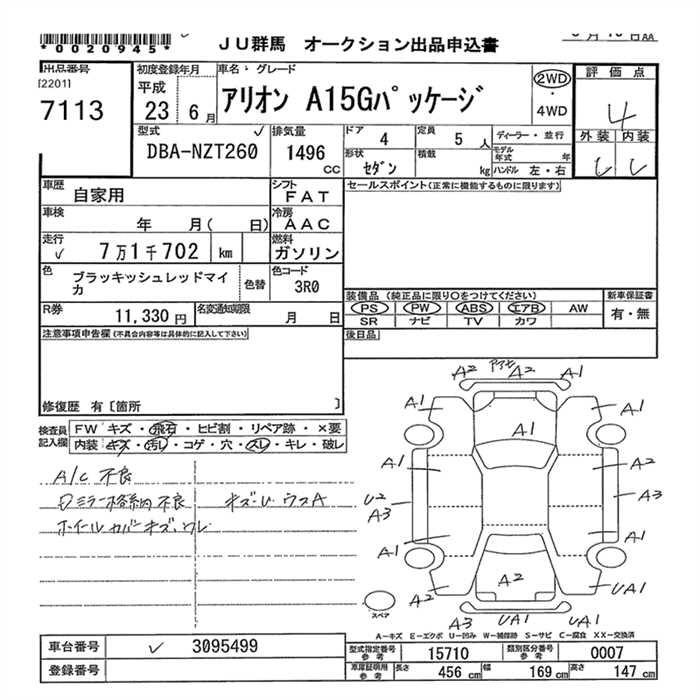 *0020945*
JU群馬 オークション出品申込書
出品番号
[2201]
7113
初度登録年月
平成
23 6月
車名・グレード
アリオン A15Gパッケージ
2WD
4WD
評 価 点
4
外装 内装
型式
DBA-NZT260
排気量
1496
cc
ドア 4
定員 5 人
形状 セダン
積載 kg
ディーラー・並行
モデル年式 年
ハンドル 左・右
車歴 自家用
シフト FAT
セールスポイント(正常に機能するものに限ります)
車検 年 月( 日)
冷房 AAC
走行 7万1千702 km
燃料 ガソリン
色 ブラッキッシュレッドマイカ
色替
色コード 3R0
装備品 (純正品に限り○をつけてください)
新車保証書
PS PW ABS エアB AW
有・無
SR ナビ TV カワ
R券 11,330円
名変通知期限 月 日
後日品
注意事項申告欄(不具合内容等は具体的に記入して下さい)
修復歴 有〔箇所 〕
検査員記入欄
FW キズ・飛石・ヒビ割・リペア跡・×要
内装・キズ・汚レ・コゲ・穴・スレ・キレ・破レ
A/C 不良
Dミラー格納不良 キズ・U ウスA
ホイールカバーキズ・ワレ
A2 A2
A1 A1
A1
A1 A2
U2 A3
A3
A1 A1
A2 A2 UA1
A3 UA1
スペア
A-キズ E-エクボ U-凹み W-補修跡 S-サビ C-腐食 XX-交換済
車台番号 3095499
登録番号
型式指定番号 参考 15710
類別区分番号 参考 0007
車庫証明用 参考 長さ 456 cm 幅 169 cm 高さ 147 cm